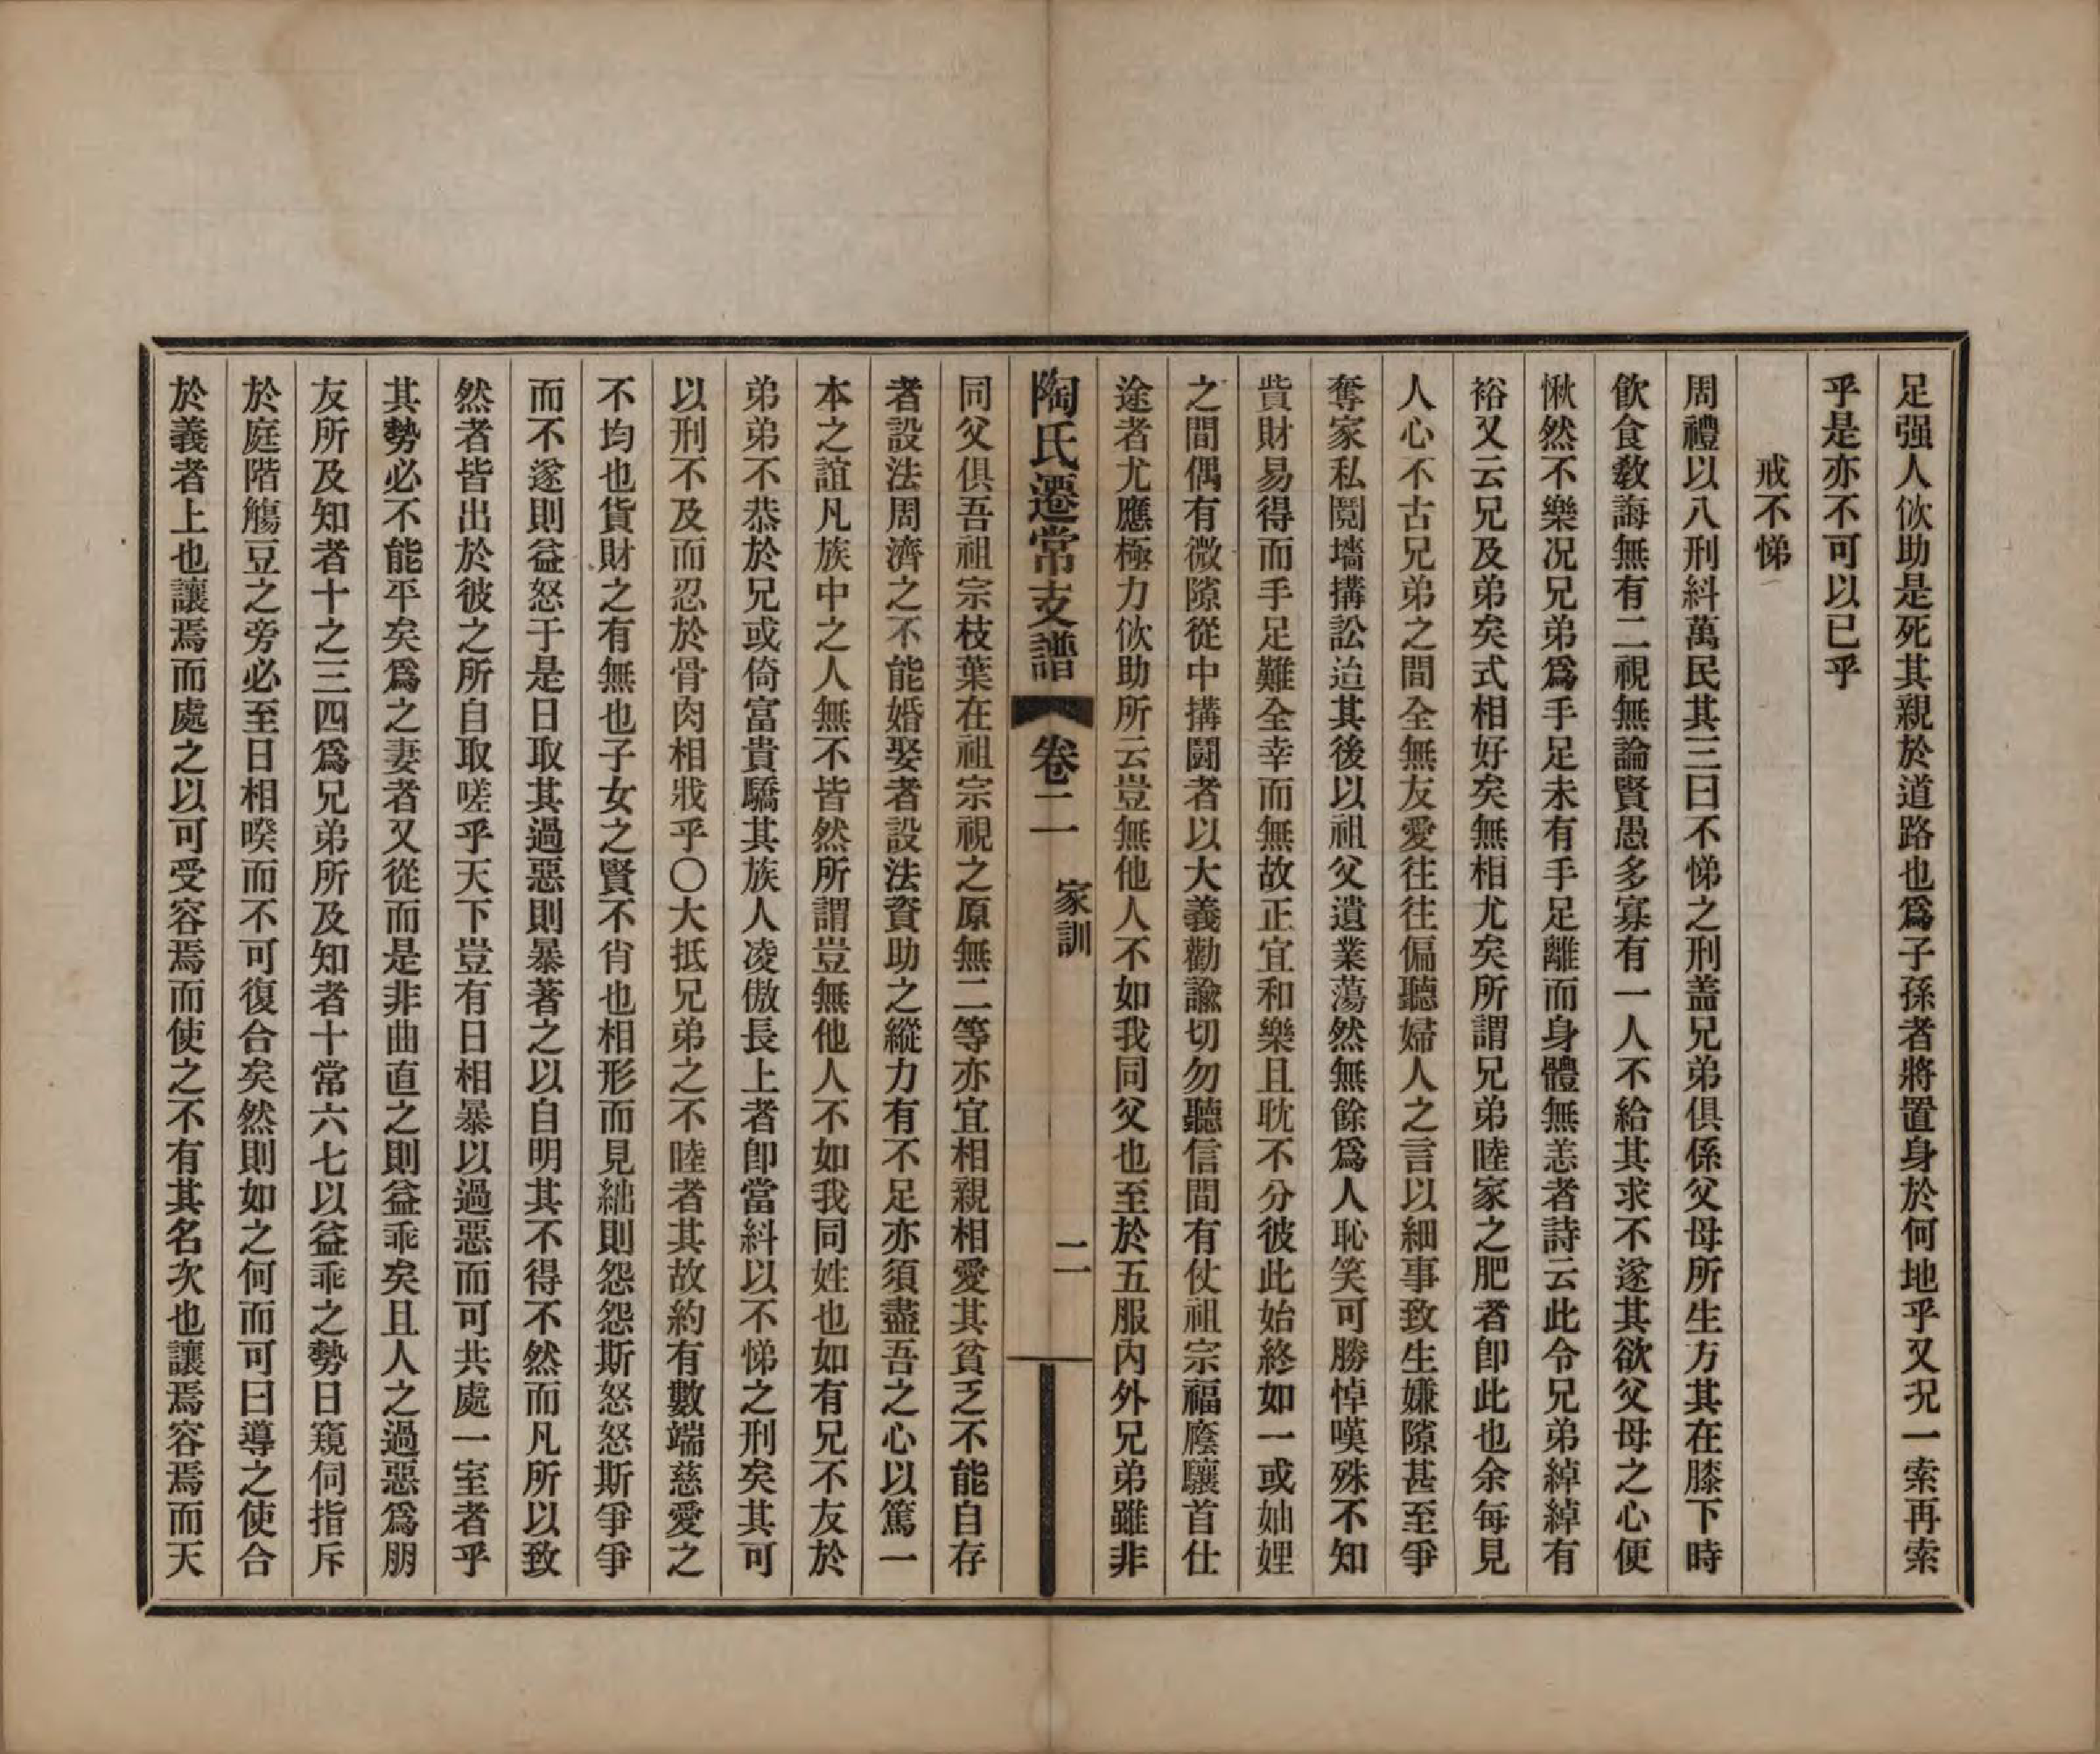 足强人佽助是死其親於道路也爲子孫者將置身於何地乎又況一索再索
乎是亦不可以已乎
戒不悌
周禮以八刑糾萬民其三曰不悌之刑蓋兄弟俱係父母所生方其在膝下時
飮食敎誨無有二視無論賢愚多寡有一人不給其求不遂其欲父母之心便
愀然不樂况兄弟爲手足未有手足離而身體無恙者詩云此令兄弟綽綽有
裕又云兄及弟矣式相好矣無相尤矣所謂兄弟睦家之肥者卽此也余每見
人心不古兄弟之間全無友愛往往偏聽婦人之言以細事致生嫌隙甚至爭
奪家私鬩墻搆訟迨其後以祖父遺業蕩然無餘爲人恥笑可勝悼嘆殊不知
貲財易得而手足難全幸而無故正宜和樂且耽不分彼此始終如一或妯娌
之間偶有微隙從中搆鬪者以大義勸諭切勿聽信間有仗祖宗福廕驤首仕
途者尤應極力佽助所云豈無他人不如我同父也至於五服內外兄弟雖非
陶氏遷常支譜 卷二 家訓 二
同父俱吾祖宗枝葉在祖宗視之原無二等亦宜相親相愛其貧乏不能自存
者設法周濟之不能婚娶者設法資助之縱力有不足亦須盡吾之心以篤一
本之誼凡族中之人無不皆然所謂豈無他人不如我同姓也如有兄不友於
弟弟不恭於兄或倚富貴驕其族人凌傲長上者卽當糾以不悌之刑矣其可
以刑不及而忍於骨肉相戕乎〇大抵兄弟之不睦者其故約有數端慈愛之
不均也貨財之有無也子女之賢不肖也相形而見絀則怨怨斯怒怒斯爭爭
而不遂則益怒于是日取其過惡則暴著之以自明其不得不然而凡所以致
然者皆出於彼之所自取嗟乎天下豈有日相暴以過惡而可共處一室者乎
其勢必不能平矣爲之妻者又從而是非曲直之則益乖矣且人之過惡爲朋
友所及知者十之三四爲兄弟所及知者十常六七以益乖之勢日窺伺指斥
於庭階觴豆之旁必至日相暌而不可復合矣然則如之何而可曰導之使合
於義者上也讓焉而處之以可受容焉而使之不有其名次也讓焉容焉而天